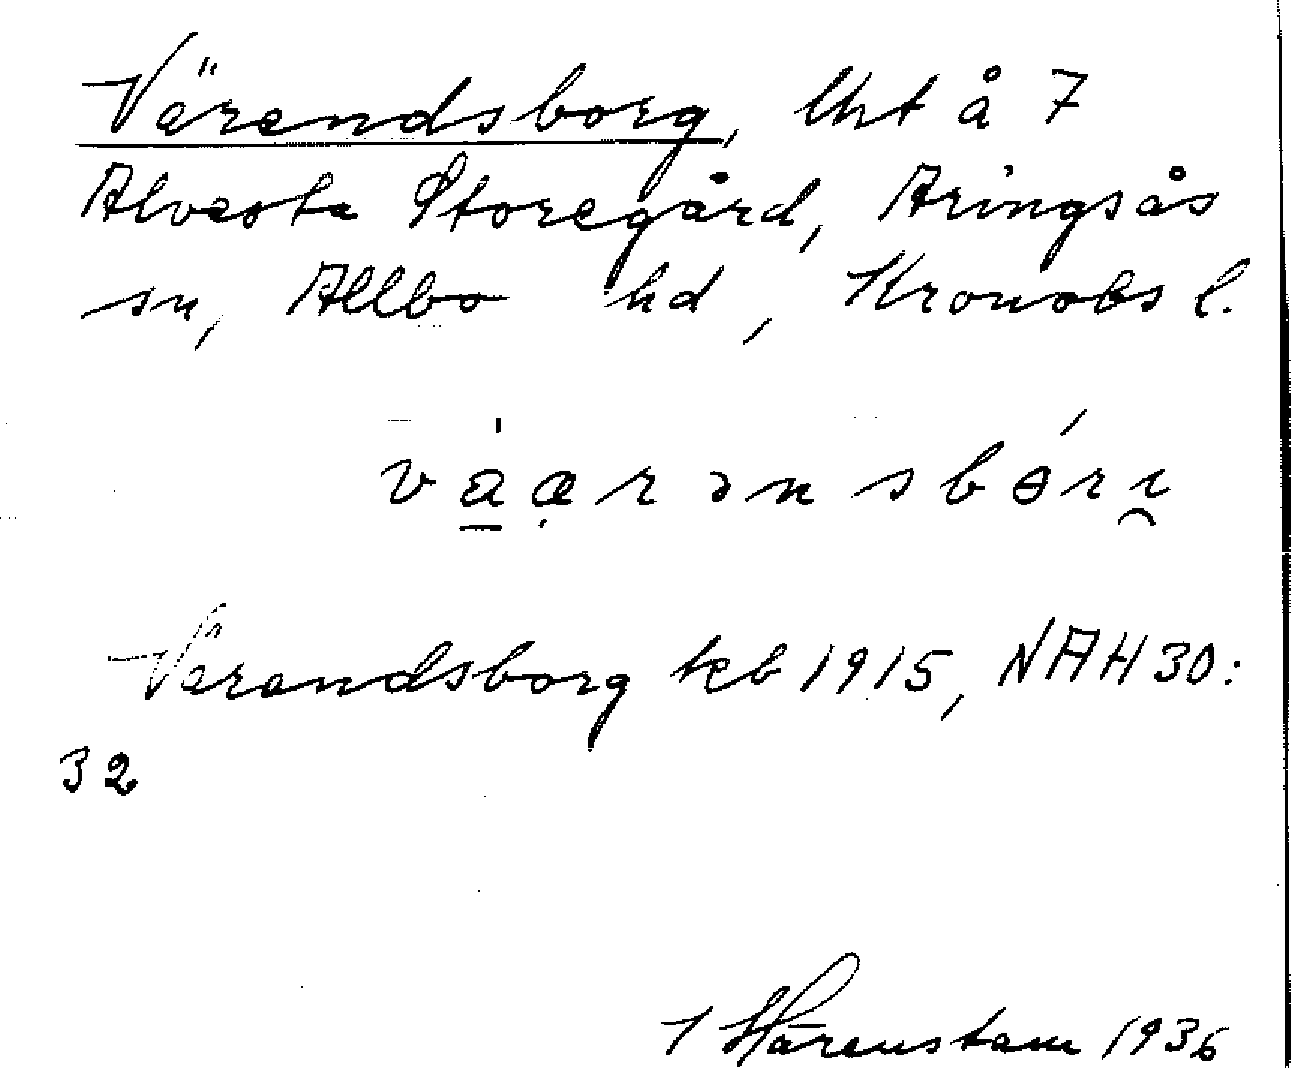 Värendsborg, lht å 7
Alvesta Storegård, Aringsås
sn, Allbo hd, Kronobs l.
vàær ən sbórı̯
Värendsborg kb 1915, NAH 30:
32
I Härenstam 1936